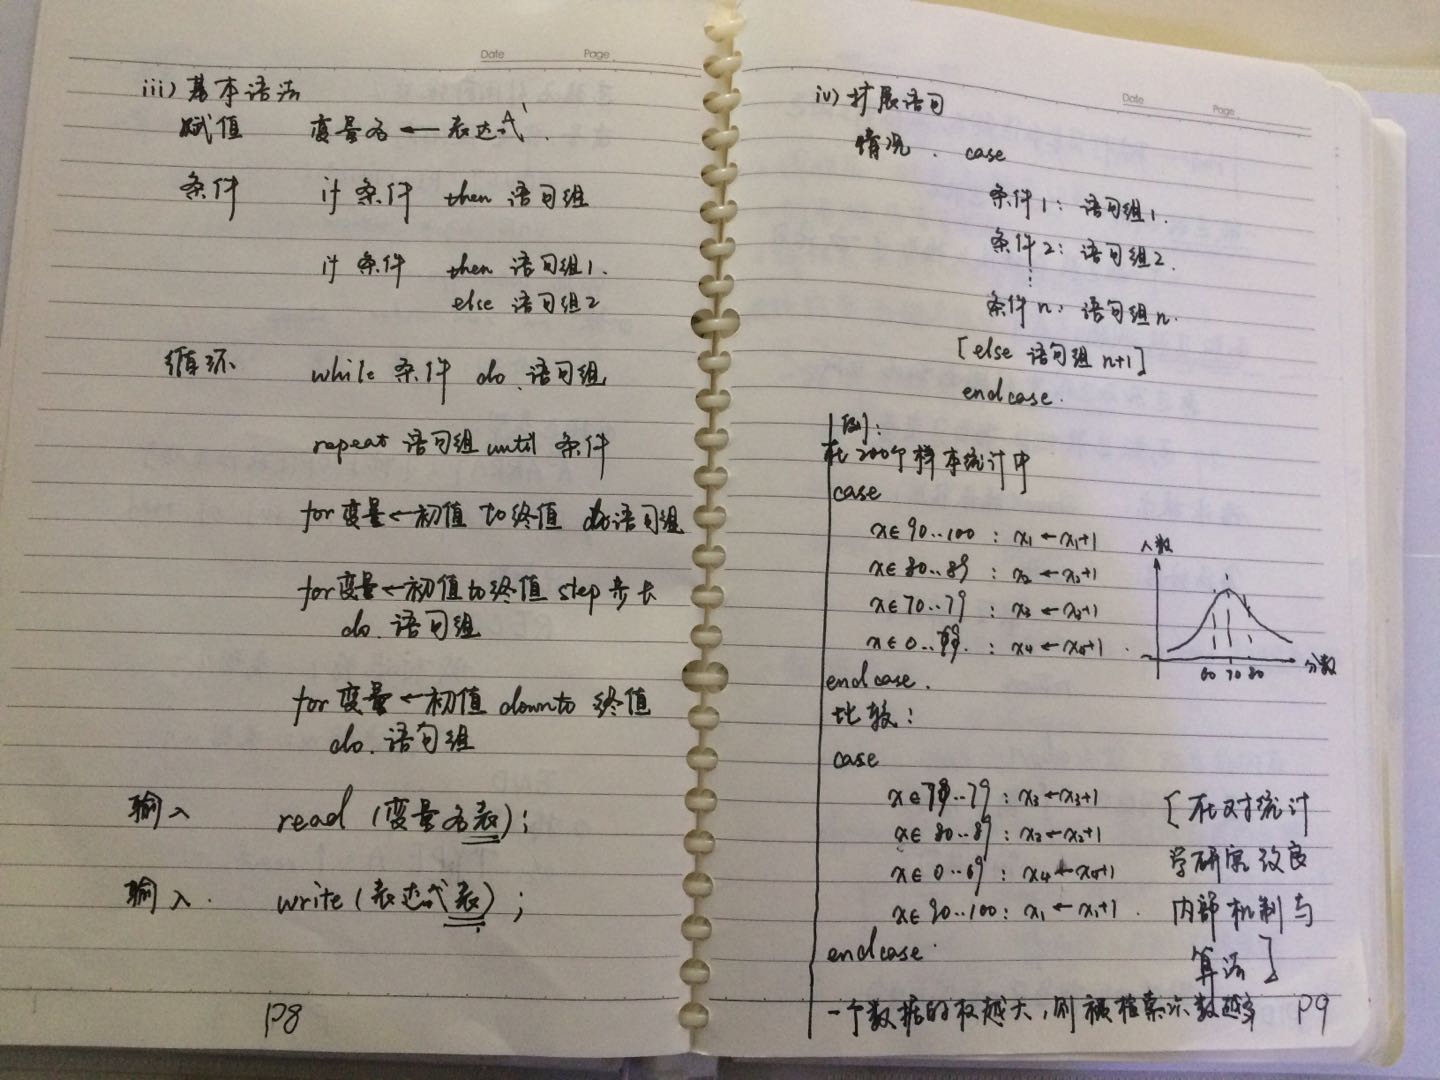 Date Page
iii) 基本语法
赋值 变量名 ← 表达式.
条件 if 条件 then 语句组
if 条件 then 语句组1.
else 语句组2
循环 while 条件 do 语句组
repeat 语句组 until 条件
for 变量←初值 to 终值 do 语句组
for 变量←初值 to 终值 step 步长
do 语句组
for 变量←初值 downto 终值
do 语句组
输入 read (变量名表);
输入. write (表达式表);
P8
Date Page
iv) 扩展语句
情况. case
条件1: 语句组1.
条件2: 语句组2.
⋮
条件n: 语句组n.
[else 语句组 n+1]
endcase.
例:
在200个样本统计中
case
x∈90..100 : x₁←x₁+1
x∈80..89 : x₂←x₂+1
x∈70..79 : x₃←x₃+1
x∈0..69 : x₄←x₄+1.
endcase.
人数
60 70 80 分数
比较:
case
x∈70..79 : x₃←x₃+1
x∈80..89 : x₂←x₂+1
x∈0..69 : x₄←x₄+1
x∈90..100: x₁←x₁+1.
endcase.
[在对统计
学研究改良
内部机制与
算法]
一个数据的权越大,则被检索次数越多
P9